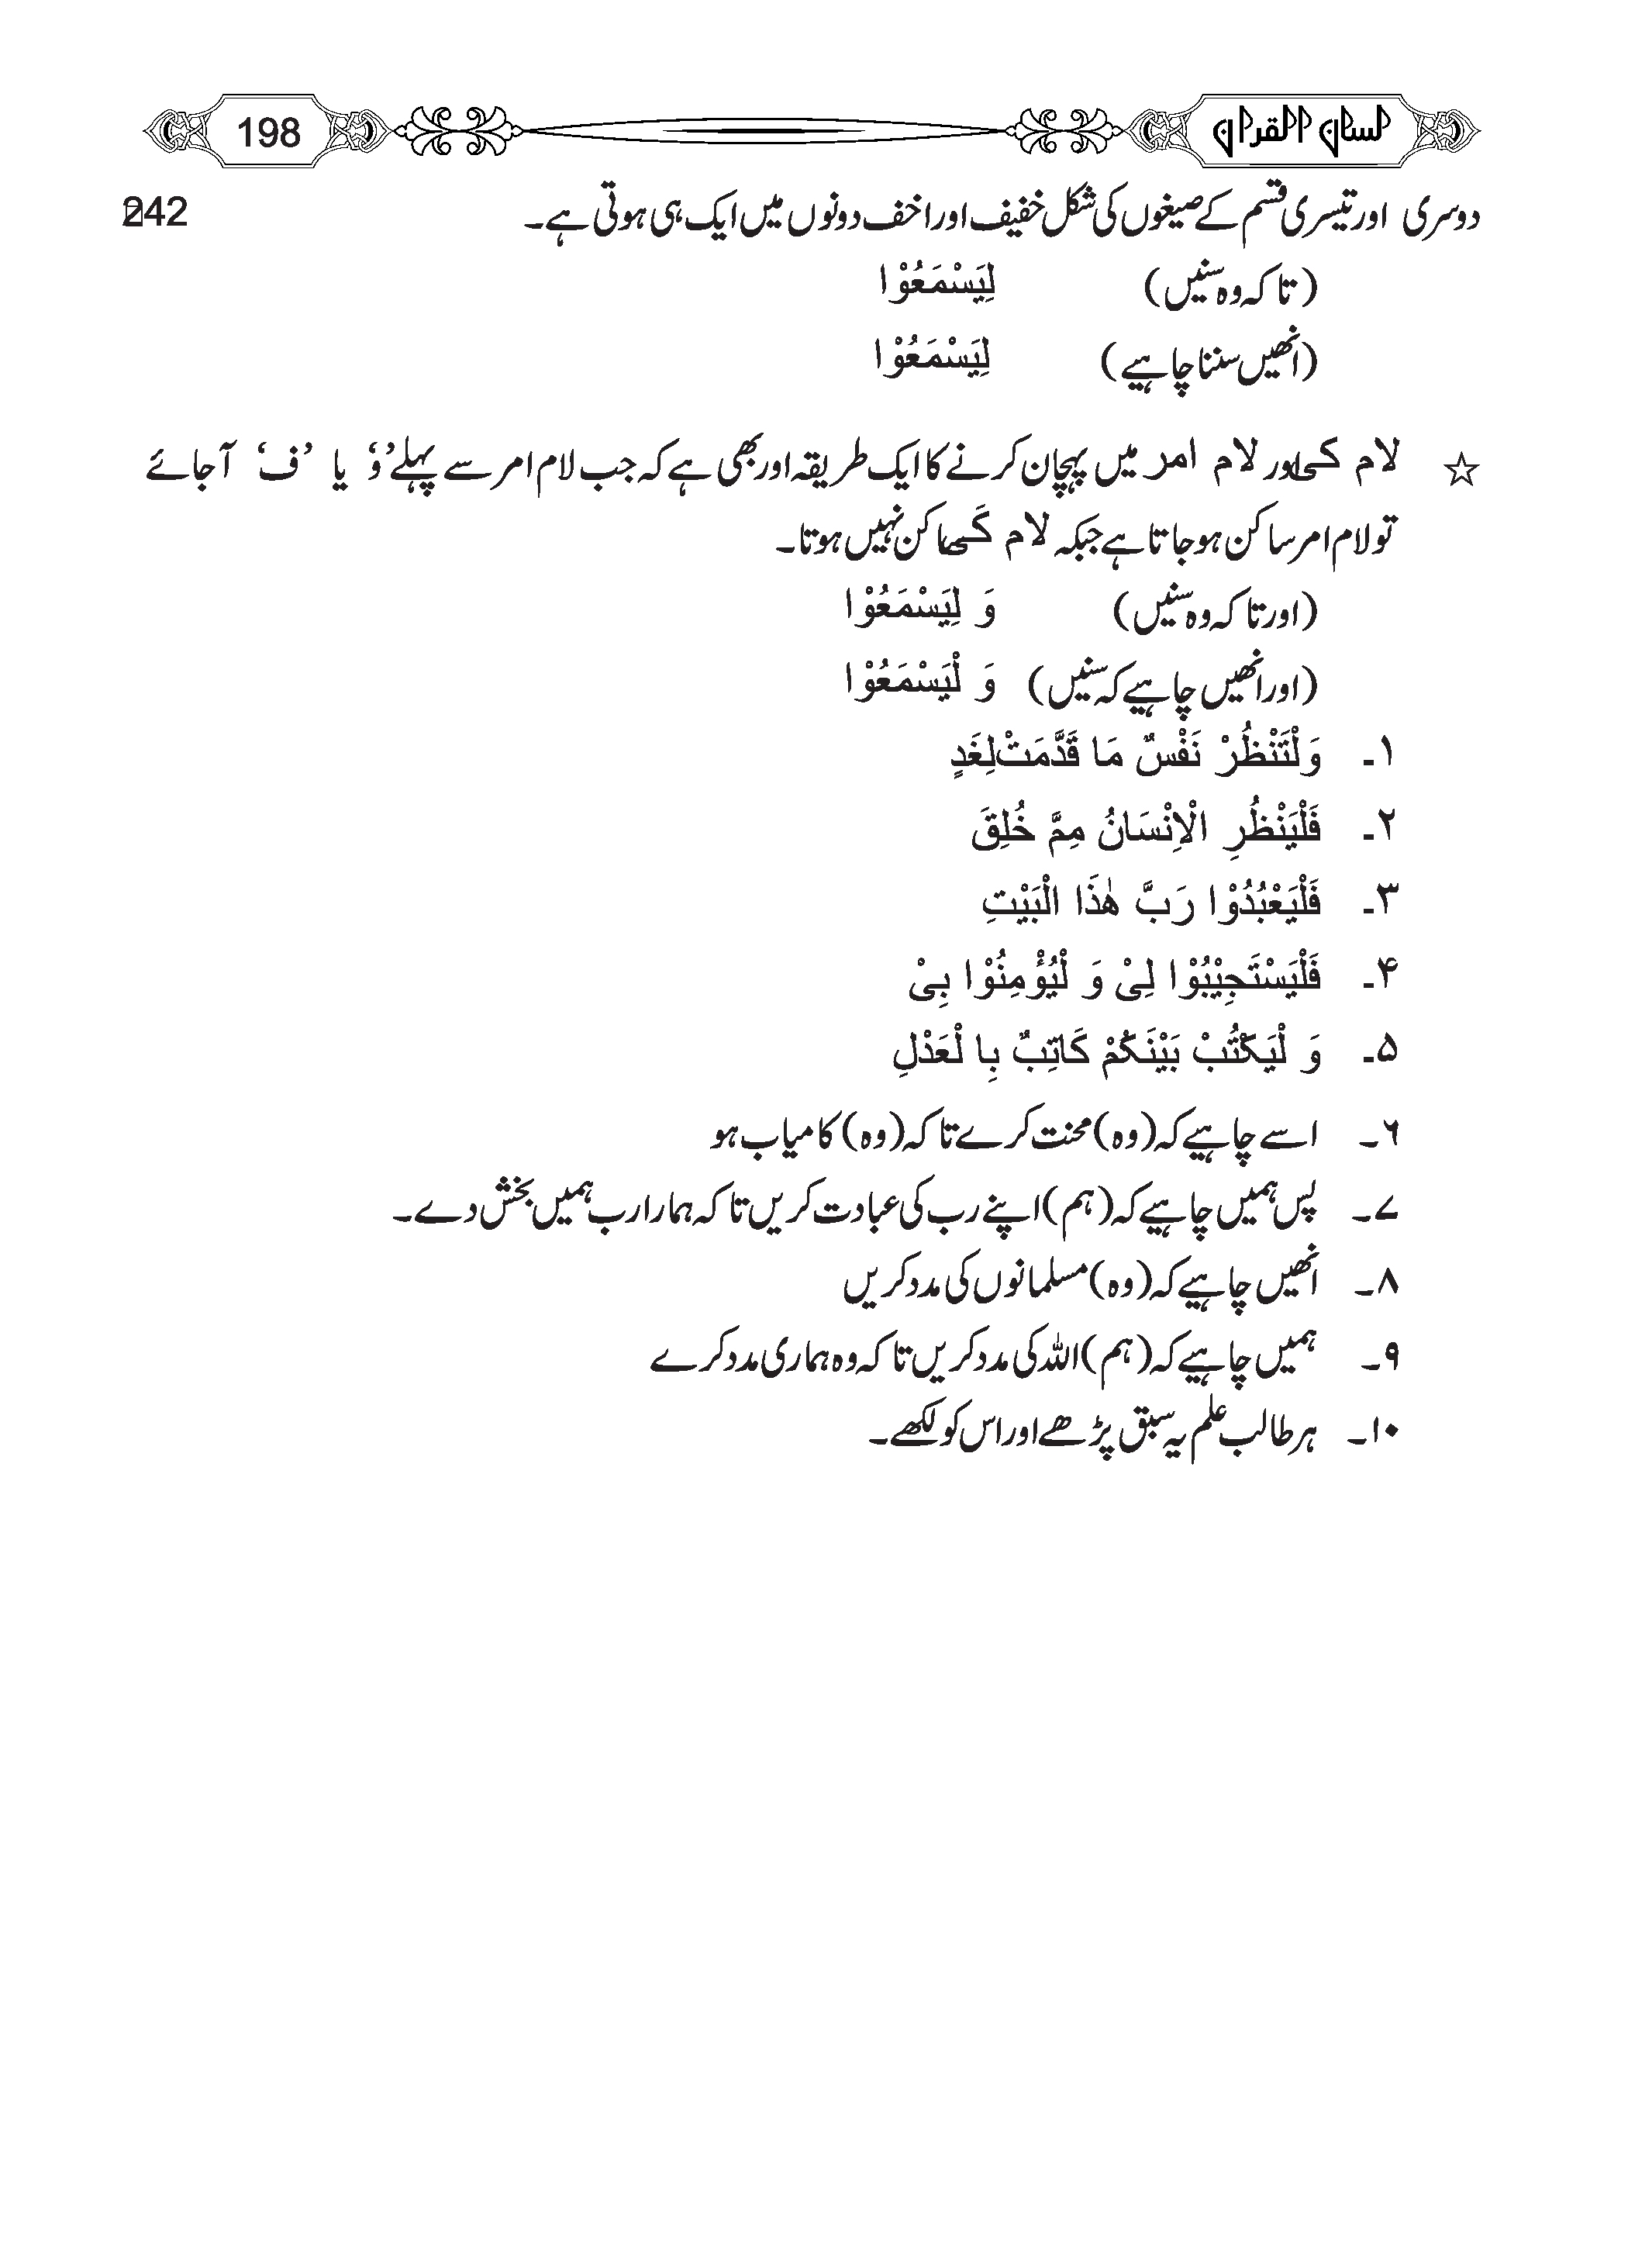 لسان القرآن 198
دوسری اور تیسری قسم کے صیغوں کی شکل خفیف اور اخف دونوں میں ایک ہی ہوتی ہے۔ 242
(تاکہ وہ سنیں) لِيَسْمَعُوْا
(انھیں سننا چاہیے) لِيَسْمَعُوْا
☆ لام کی اور لام امر میں پہچان کرنے کا ایک طریقہ اور بھی ہے کہ جب لام امر سے پہلے ’و‘ یا ’ف‘ آجائے
تو لام امر ساکن ہو جاتا ہے جبکہ لام کَی ساکن نہیں ہوتا۔
(اور تاکہ وہ سنیں) وَ لِيَسْمَعُوْا
(اور انھیں چاہیے کہ سنیں) وَ لْيَسْمَعُوْا
۱۔ وَلْتَنْظُرْ نَفْسٌ مَا قَدَّمَتْ لِغَدٍ
۲۔ فَلْيَنْظُرِ الْاِنْسَانُ مِمَّ خُلِقَ
۳۔ فَلْيَعْبُدُوْا رَبَّ هٰذَا الْبَيْتِ
۴۔ فَلْيَسْتَجِيْبُوْا لِىْ وَ لْيُؤْمِنُوْا بِىْ
۵۔ وَ لْيَكْتُبْ بَيْنَكُمْ كَاتِبٌ بِا لْعَدْلِ
۶۔ اسے چاہیے کہ (وہ) محنت کرے تاکہ (وہ) کامیاب ہو
۷۔ پس ہمیں چاہیے کہ (ہم) اپنے رب کی عبادت کریں تاکہ ہمارا رب ہمیں بخش دے۔
۸۔ انھیں چاہیے کہ (وہ) مسلمانوں کی مدد کریں
۹۔ ہمیں چاہیے کہ (ہم) اللہ کی مدد کریں تاکہ وہ ہماری مدد کرے
۱۰۔ ہر طالب علم یہ سبق پڑھے اور اس کو لکھے۔